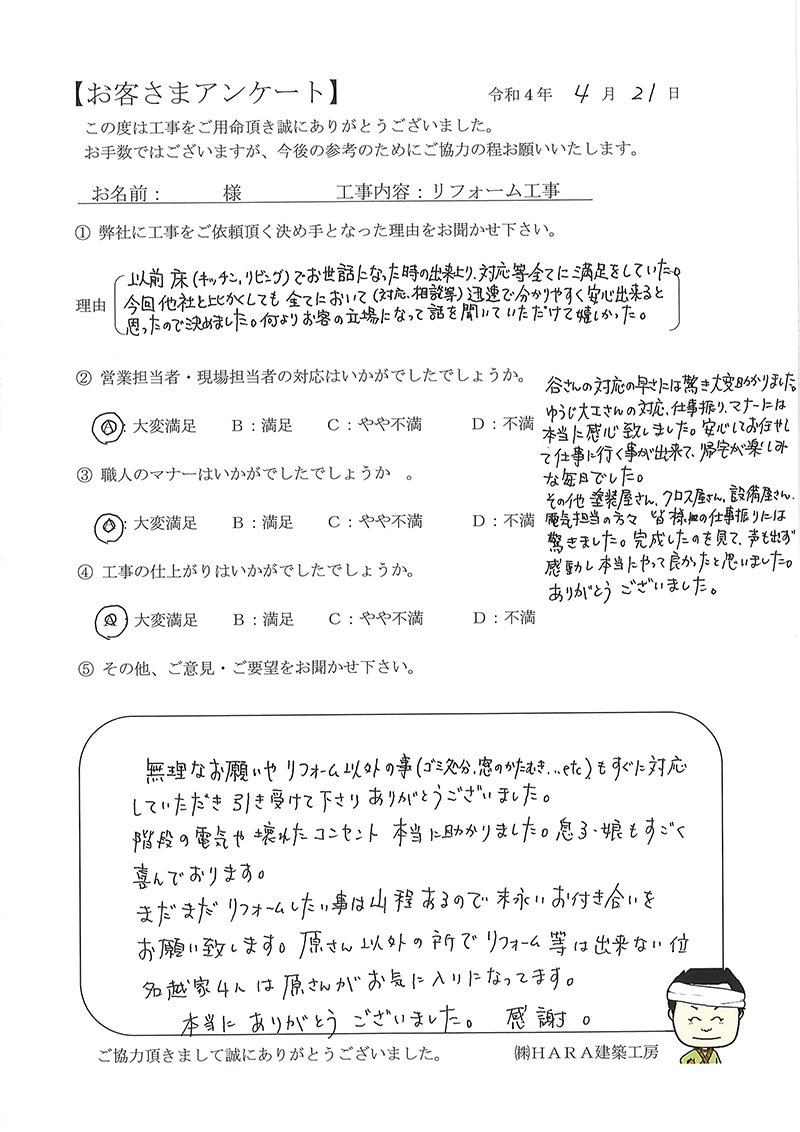 【お客さまアンケート】
令和4年 4月 21日
この度は工事をご用命頂き誠にありがとうございました。
お手数ではございますが、今後の参考のためにご協力の程お願いいたします。
お名前： 様 工事内容：リフォーム工事
① 弊社に工事をご依頼頂く決め手となった理由をお聞かせ下さい。
理由
以前 床(キッチン,リビング)でお世話になった時の出来上り、対応等全てに満足をしていた。
今回他社と比かくしても 全てにおいて(対応、相談等)迅速で分かりやすく安心出来ると
思ったので決めました。何よりお客の立場になって話を聞いていただけて嬉しかった。
② 営業担当者・現場担当者の対応はいかがでしたでしょうか。
A：大変満足 B：満足 C：やや不満 D：不満
③ 職人のマナーはいかがでしたでしょうか 。
A：大変満足 B：満足 C：やや不満 D：不満
④ 工事の仕上がりはいかがでしたでしょうか。
A：大変満足 B：満足 C：やや不満 D：不満
谷さんの対応の早さには驚き大変助かりました。
ゆうじ大工さんの対応、仕事振り、マナーには
本当に感心致しました。安心してお任せし
て仕事に行く事が出来て、帰宅が楽しみ
な毎日でした。
その他 塗装屋さん、クロス屋さん、設備屋さん、
電気担当の方々 皆様の仕事振りには
驚きました。完成したのを見て、声も出ず
感動し本当にやって良かったと思いました。
ありがとう ございました。
⑤ その他、ご意見・ご要望をお聞かせ下さい。
無理なお願いや リフォーム以外の事(ゴミ処分,窓のかたむき,…etc)もすぐに対応
していただき 引き受けて下さり ありがとうございました。
階段の電気や 壊れたコンセント 本当に助かりました。息子・娘もすごく
喜んでおります。
まだまだ リフォームしたい事は山程 あるので 末永い お付き合いを
お願い致します。原さん以外の所で リフォーム 等は出来ない位
名越家4人 は 原さんが お気に入りになってます。
本当に ありがとう ございました。 感謝。
ご協力頂きまして誠にありがとうございました。 ㈱HARA建築工房